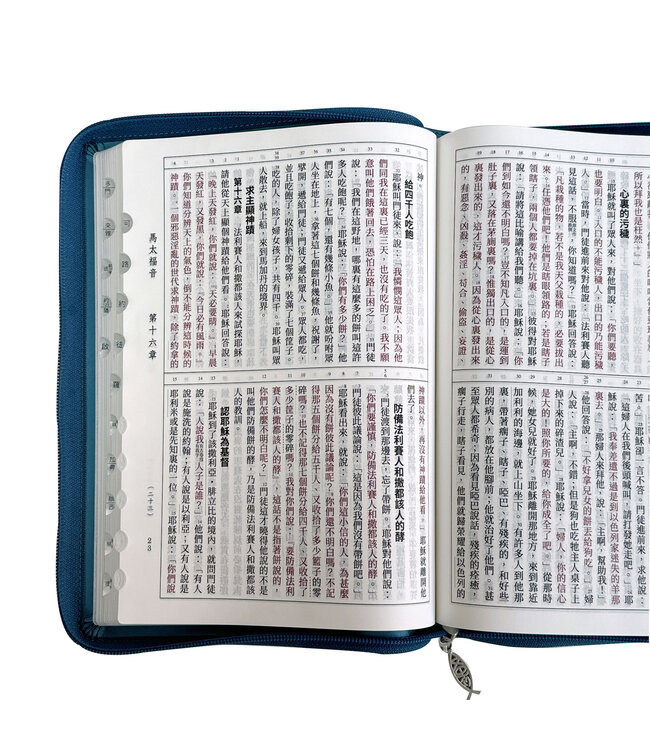 所以拜我也是枉然。』」
心裏的污穢
耶穌就叫了眾人來，對他們說：「你們要聽，
也要明白。入口的不能污穢人，出口的乃能污穢
人。」當時，門徒進前來對他說：「法利賽人聽
見這話，不服，你知道嗎？」耶穌回答說：
「凡栽種的物，若不是我天父栽種的，必要拔出
來。任憑他們吧！他們是瞎眼領路的；若是瞎子
領瞎子，兩個人都要掉在坑裏。」彼得對耶穌
說：「請將這比喻講給我們聽。」耶穌說：「你
們到如今還不明白嗎？豈不知凡入口的，是運到
肚子裏，又落在茅廁裏嗎？惟獨出口的，是從心
裏發出來的，這才污穢人。因為從心裏發出來
的，有惡念、凶殺、姦淫、苟合、偷盜、妄證、
苦。」耶穌卻一言不答。門徒進前來，求他說：
「這婦人在我們後頭喊叫，請打發她走吧。」耶
穌說：「我奉差遣不過是到以色列家迷失的羊那
裏去。」那婦人來拜他，說：「主啊，幫助我！」
他回答說：「不好拿兒女的餅丟給狗吃。」婦
人說：「主啊，不錯；但是狗也吃牠主人桌子上
掉下來的碎渣兒。」耶穌說：「婦人，你的信心
是大的！照你所要的，給你成全了吧。」從那時
候，她女兒就好了。耶穌離開那地方，來到靠近
加利利的海邊，就上山坐下。有許多人到他那
裏，帶著瘸子、瞎子、啞巴、有殘疾的，和好些
別的病人，都放在他腳前；他就治好了他們。甚
至眾人都希奇；因為看見啞巴說話，殘疾的痊癒，
瘸子行走，瞎子看見，他們就歸榮耀給以色列的
神。
給四千人吃飽
耶穌叫門徒來，說：「我憐憫這眾人；因為他
們同我在這裏已經三天，也沒有吃的了。我不願
意叫他們餓著回去，恐怕在路上困乏。」門徒
說：「我們在這野地，哪裏有這麼多的餅叫這許
多人吃飽呢？」耶穌說：「你們有多少餅？」他
們說：「有七個，還有幾條小魚。」他就吩咐眾
人坐在地上，拿著這七個餅和幾條魚，祝謝了，
擘開，遞給門徒；門徒又遞給眾人。眾人都吃，
並且吃飽了，收拾剩下的零碎，裝滿了七個筐子。
吃的人，除了婦女孩子，共有四千。耶穌叫眾
人散去，就上船，來到馬加丹的境界。
求主顯神蹟
第十六章 法利賽人和撒都該人來試探耶穌，
請他從天上顯個神蹟給他們看。耶穌回答說：
「晚上天發紅，你們就說：『天必要晴。』早晨
天發紅，又發黑，你們就說：『今日必有風雨。』
你們知道分辨天上的氣色，倒不能分辨這時候的
神蹟。一個邪惡淫亂的世代求神蹟，除了約拿的
神蹟以外，再沒有神蹟給他看。」耶穌就離開他
們去了。
防備法利賽人和撒都該人的酵
門徒渡到那邊去，忘了帶餅。耶穌對他們說：
「你們要謹慎，防備法利賽人和撒都該人的酵。」
門徒彼此議論說：「這是因為我們沒有帶餅吧。」
耶穌看出來，就說：「你們這小信的人，為甚麼
因為沒有餅彼此議論呢？你們還不明白嗎？不記
得那五個餅分給五千人、又收拾了多少籃子的零
碎嗎？也不記得那七個餅分給四千人、又收拾了
多少筐子的零碎嗎？我對你們說：『要防備法利
賽人和撒都該人的酵』，這話不是指著餅說的，
你們怎麼不明白呢？」門徒這才曉得他說的不是
叫他們防備餅的酵，乃是防備法利賽人和撒都該
人的教訓。
認耶穌為基督
耶穌到了該撒利亞．腓立比的境內，就問門徒
說：「人說我人子是誰？」他們說：「有人
說是施洗的約翰；有人說是以利亞；又有人說是
耶利米或是先知裏的一位。」耶穌說：「你們說
馬太福音 第十六章
（二十三） 23